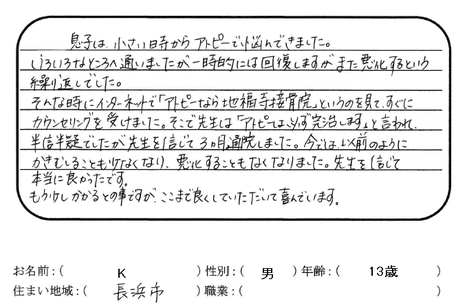 息子は、小さい時からアトピーで悩んできました。
いろいろなところへ通いましたが一時的には回復しますがまた悪化するという
繰り返しでした。
そんな時にインターネットで「アトピーなら地福寺接骨院」というのを見て、すぐに
カウンセリングを受けました。そこで先生は「アトピーは必ず完治します」と言われ、
半信半疑でしたが先生を信じて3ヵ月通院しました。今では以前のように
かきむしることも少なくなり、悪化することもなくなりました。先生を信じて
本当に良かったです。
もう少しかかるとの事ですが、ここまで良くしていただいて喜んでいます。
お名前:( K )性別:( 男 )年齢:( 13歳 )
住まい地域:( 長浜市 )職業:( )